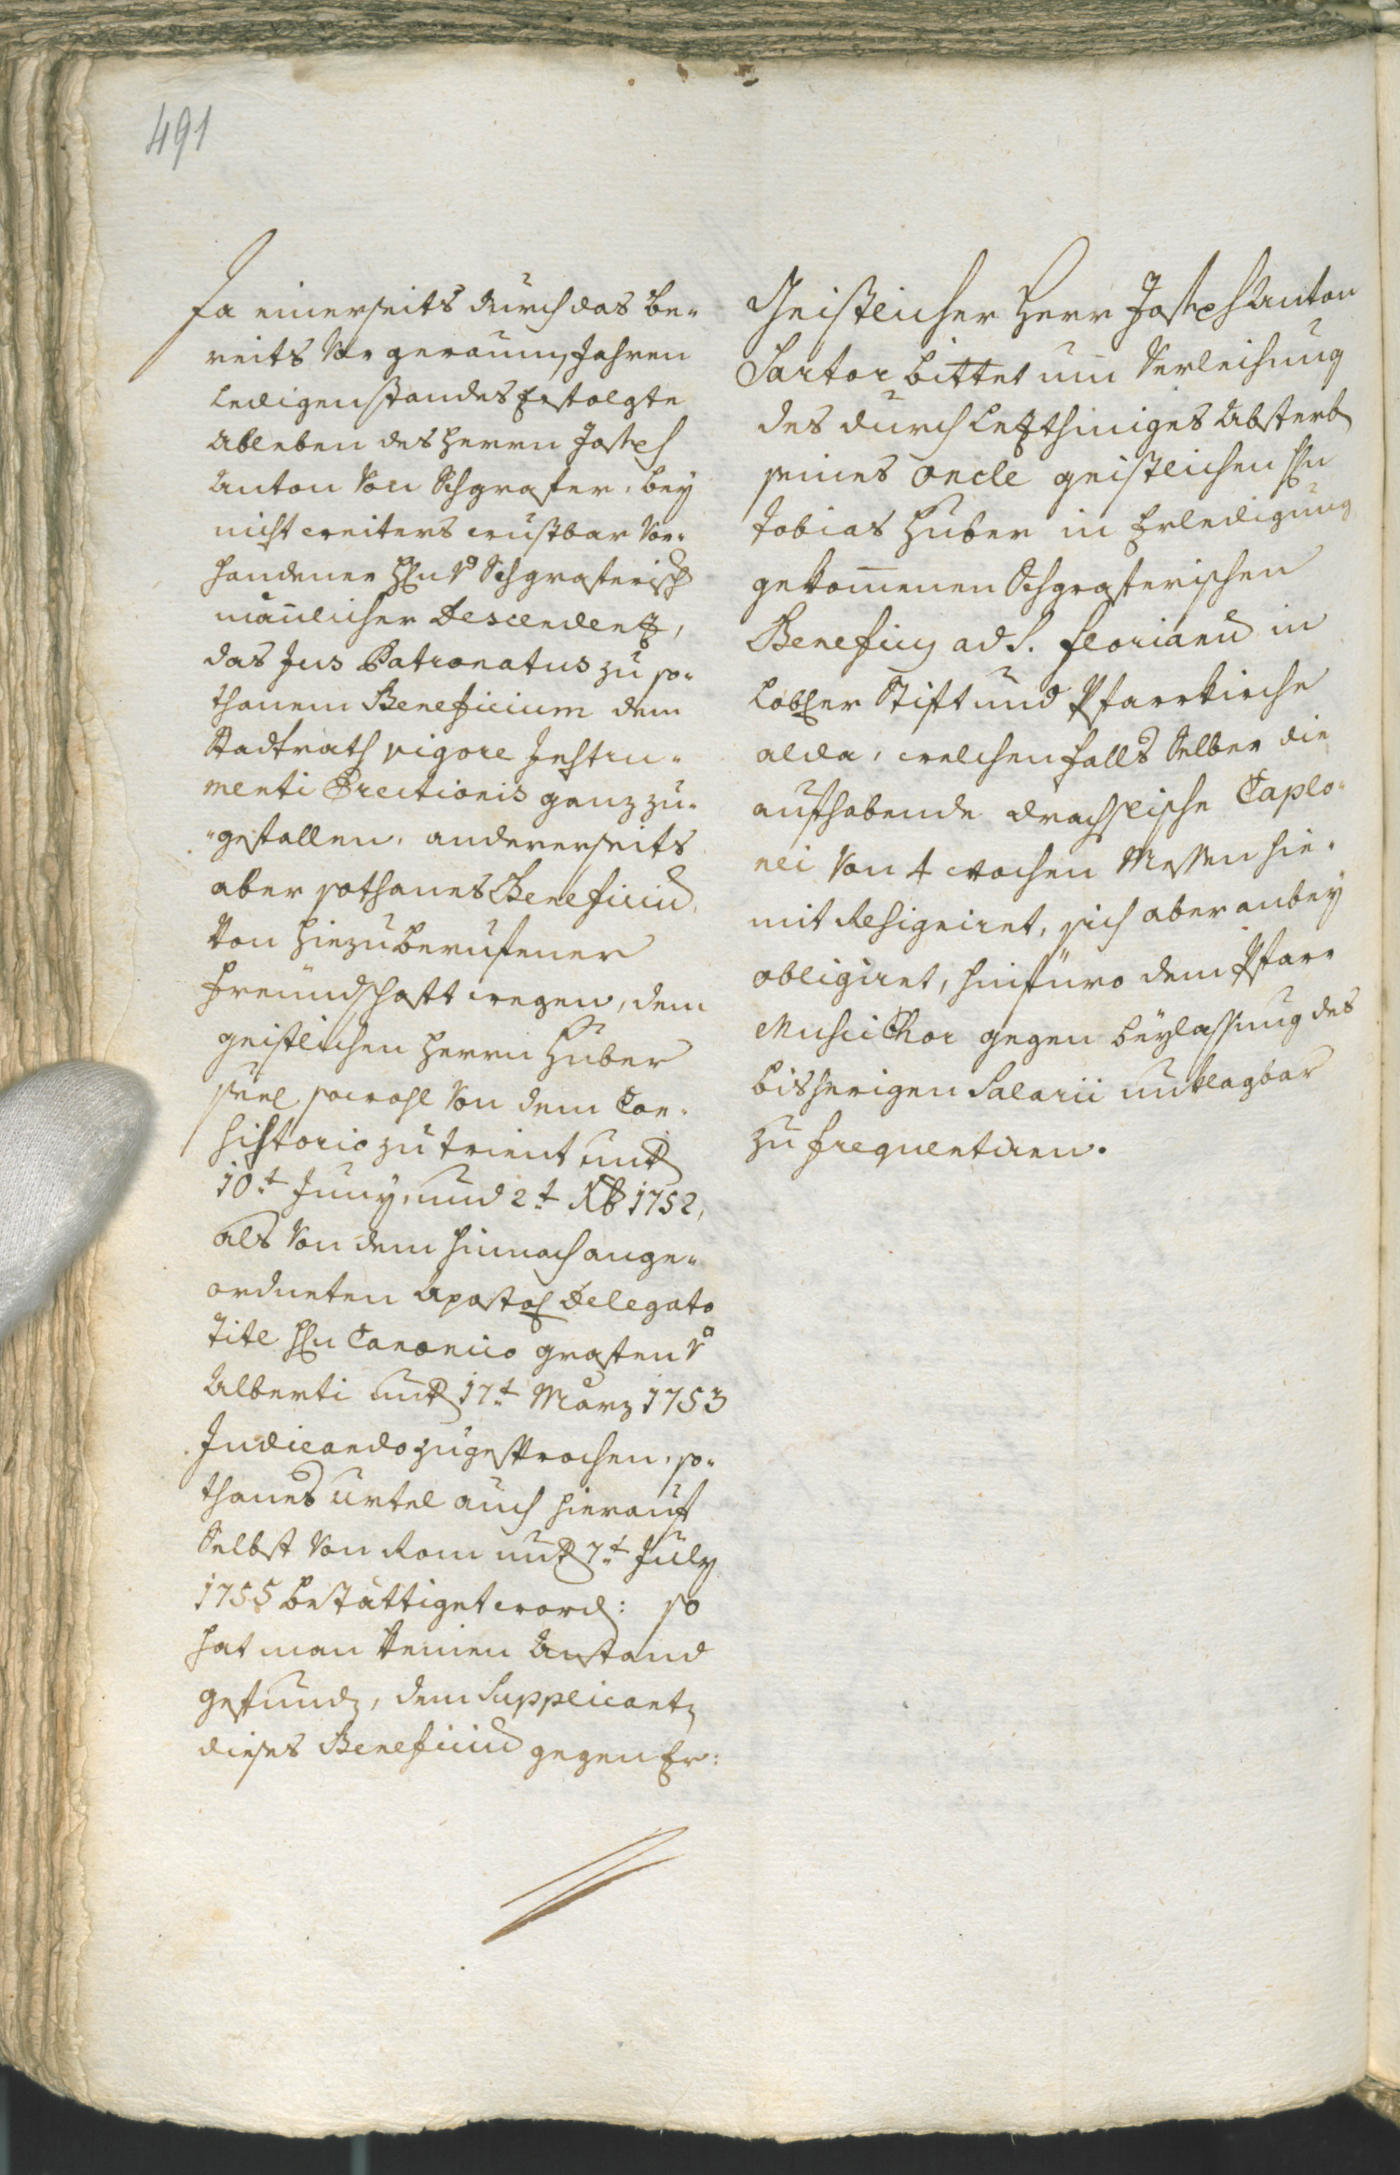 491
Ja einerseits durch das be-
reits vor geraumen Jahren
Ledigenstandes erfolgte
Ableben des Herrn Joseph
Anton von Schgrafer, bey
nicht weiters wustbar vor-
handener Hhn v Schgraferisch
mañlicher Descendenz,
das Jus Patronatus zu so-
thanem Beneficium dem
Stadtrath vigore Instru-
menti Erectionis ganz zu-
gefallen, andererseits
aber sothanes Beneficiũ
von hiezu berufener
Freündschaft wegen, dem
geistlichen Herrn Huber
seel sowohl von dem Con-
sistorio zu Trient unt
10.t Juny, und 2.t Xb 1752,
als von dem hinnach ange-
ordneten Apostol Delegato
Titl Hhn Canonico grafen v
Alberti unt 17.t März 1753
Judicando zugesprochen, so-
thanes Urtel auch hierauf
Selbst von Rom unt 7.t July
1755 bestättiget word: so
hat man keinen Anstand
gefunden, dem Supplicanten
dieses Beneficiũ gegen Er:
Geistlicher Herr Joseph Anton
Sartor bittet um Verleihung
des durch letzthiniges Absterben
seines oncle geistlichen Hhn
Tobias Huber in Erledigung
gekommenen Schgraferischen
Beneficij ad S. Florianũ in
Lobher Stift und Pfarrkirche
alda, welchenfalls Selber die
aufhabende drachslische Caplo-
nei von 4 wochen Messen hie-
mit Resigniret, sich aber anbey
obligiret, hinfüro dem Pfarr
Music Chor gegen beylassung des
bisherigen Salarii unklagbar
zu frequentiren.